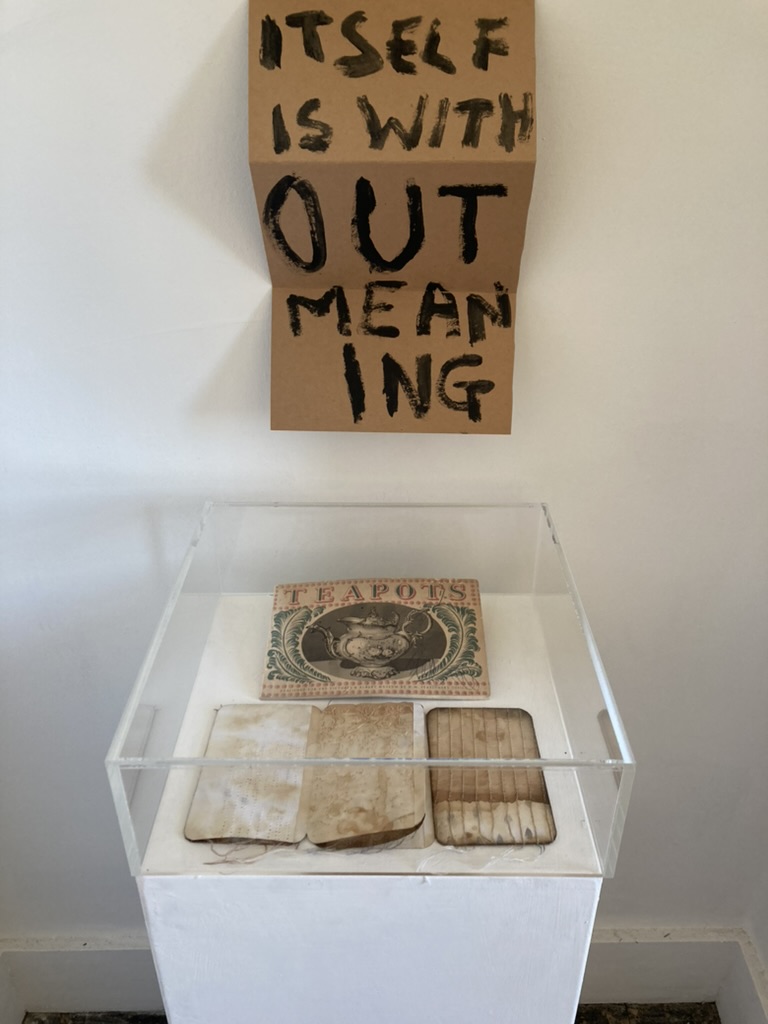 ITSELF
IS WITH
OUT
MEAN
ING
TEAPOTS